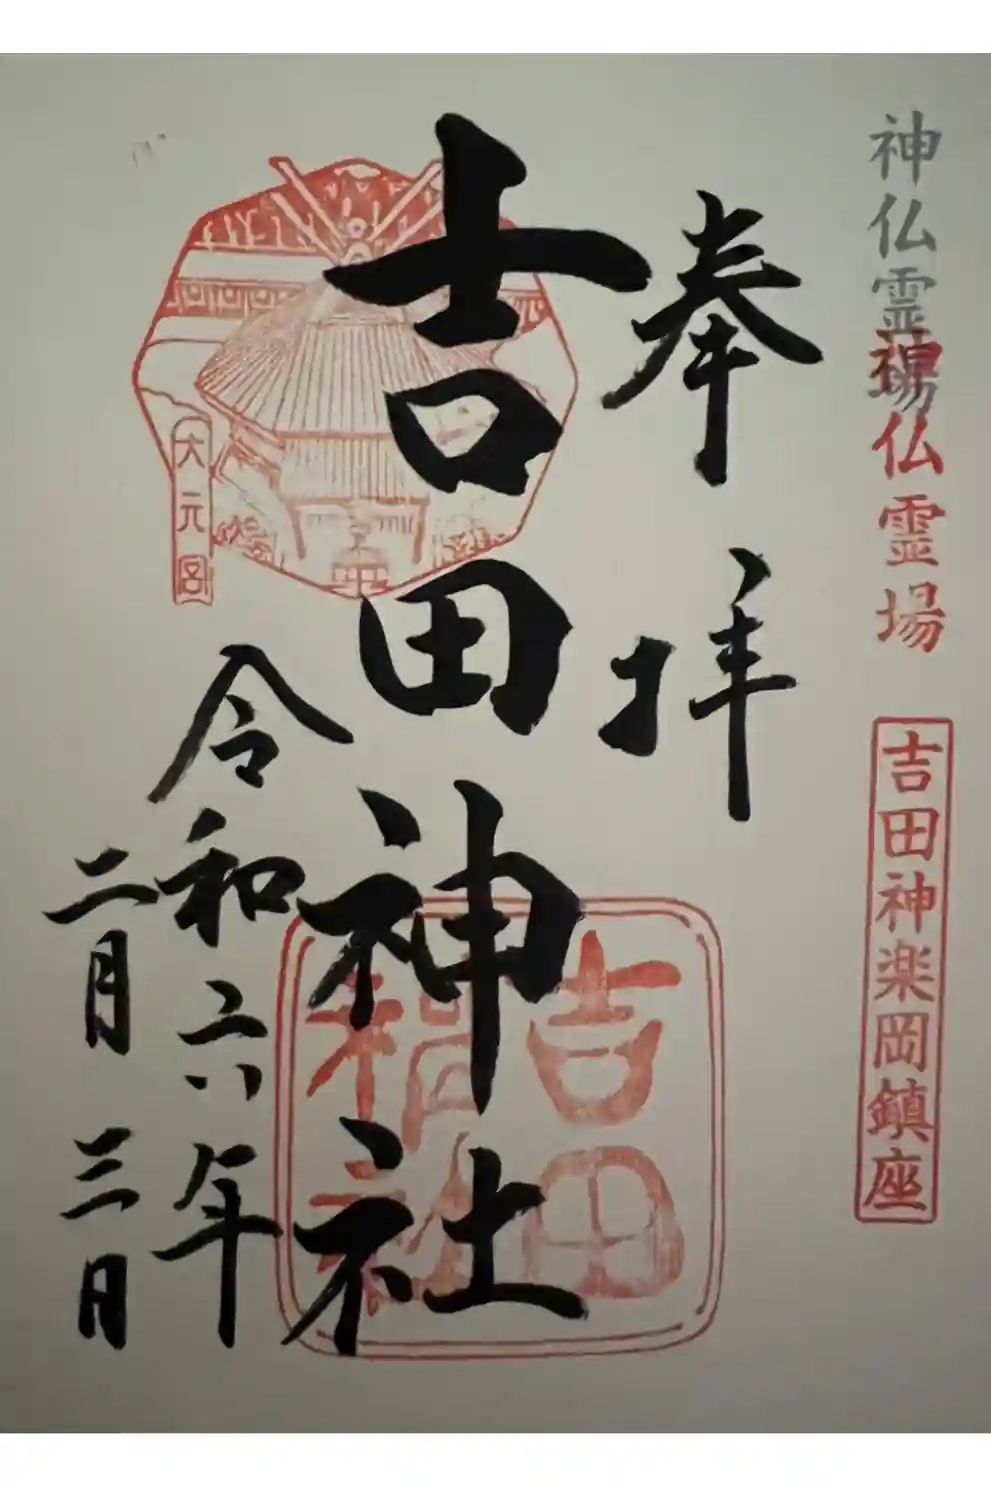 神仏霊場
神仏霊場
吉田神楽岡鎮座
奉拝
吉田神社
吉田
神社
大元宮
令和六年
二月三日